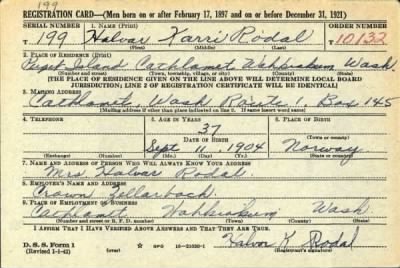 199
REGISTRATION CARD—(Men born on or after February 17, 1897 and on or before December 31, 1921)
SERIAL NUMBER 1. NAME (Print) ORDER NUMBER
T 199 Halvar Karri Rodal T 10,132
(First) (Middle) (Last)
2. PLACE OF RESIDENCE (Print)
Puget Island Cathlamet Wahkiakum Wash.
(Number and street) (Town, township, village, or city) (County) (State)
[THE PLACE OF RESIDENCE GIVEN ON THE LINE ABOVE WILL DETERMINE LOCAL BOARD
JURISDICTION; LINE 2 OF REGISTRATION CERTIFICATE WILL BE IDENTICAL]
3. MAILING ADDRESS
Cathlamet, Wash. Route 1, Box 145
[Mailing address if other than place indicated on line 2. If same insert word same]
4. TELEPHONE 5. AGE IN YEARS 6. PLACE OF BIRTH
37
DATE OF BIRTH (Town or county)
Sept. 11, 1904 Norway
(Exchange) (Number) (Mo.) (Day) (Yr.) (State or country)
7. NAME AND ADDRESS OF PERSON WHO WILL ALWAYS KNOW YOUR ADDRESS
Mrs. Halvar Rodal
8. EMPLOYER'S NAME AND ADDRESS
Crown Zellarback
9. PLACE OF EMPLOYMENT OR BUSINESS
Cathlamet Wahkiakum Wash
(Number and street or R. F. D. number) (Town) (County) (State)
I AFFIRM THAT I HAVE VERIFIED ABOVE ANSWERS AND THAT THEY ARE TRUE.
D. S. S. Form 1 Halvar K Rodal
(Revised 1-1-42) (over) GPO 16-21630-1 (Registrant's signature)